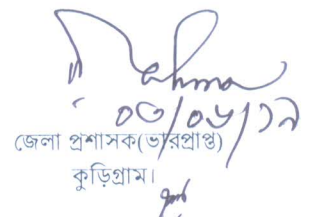 ০৩/০৬/১৯
জেলা প্রশাসক(ভারপ্রাপ্ত)
কুড়িগ্রাম।